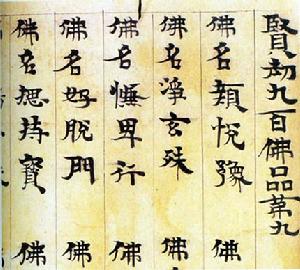 賢劫九百佛品第九
佛名悅豫 佛
佛名淨玄殊 佛
佛名行 佛
佛名好脫門 佛
佛名持寶 佛